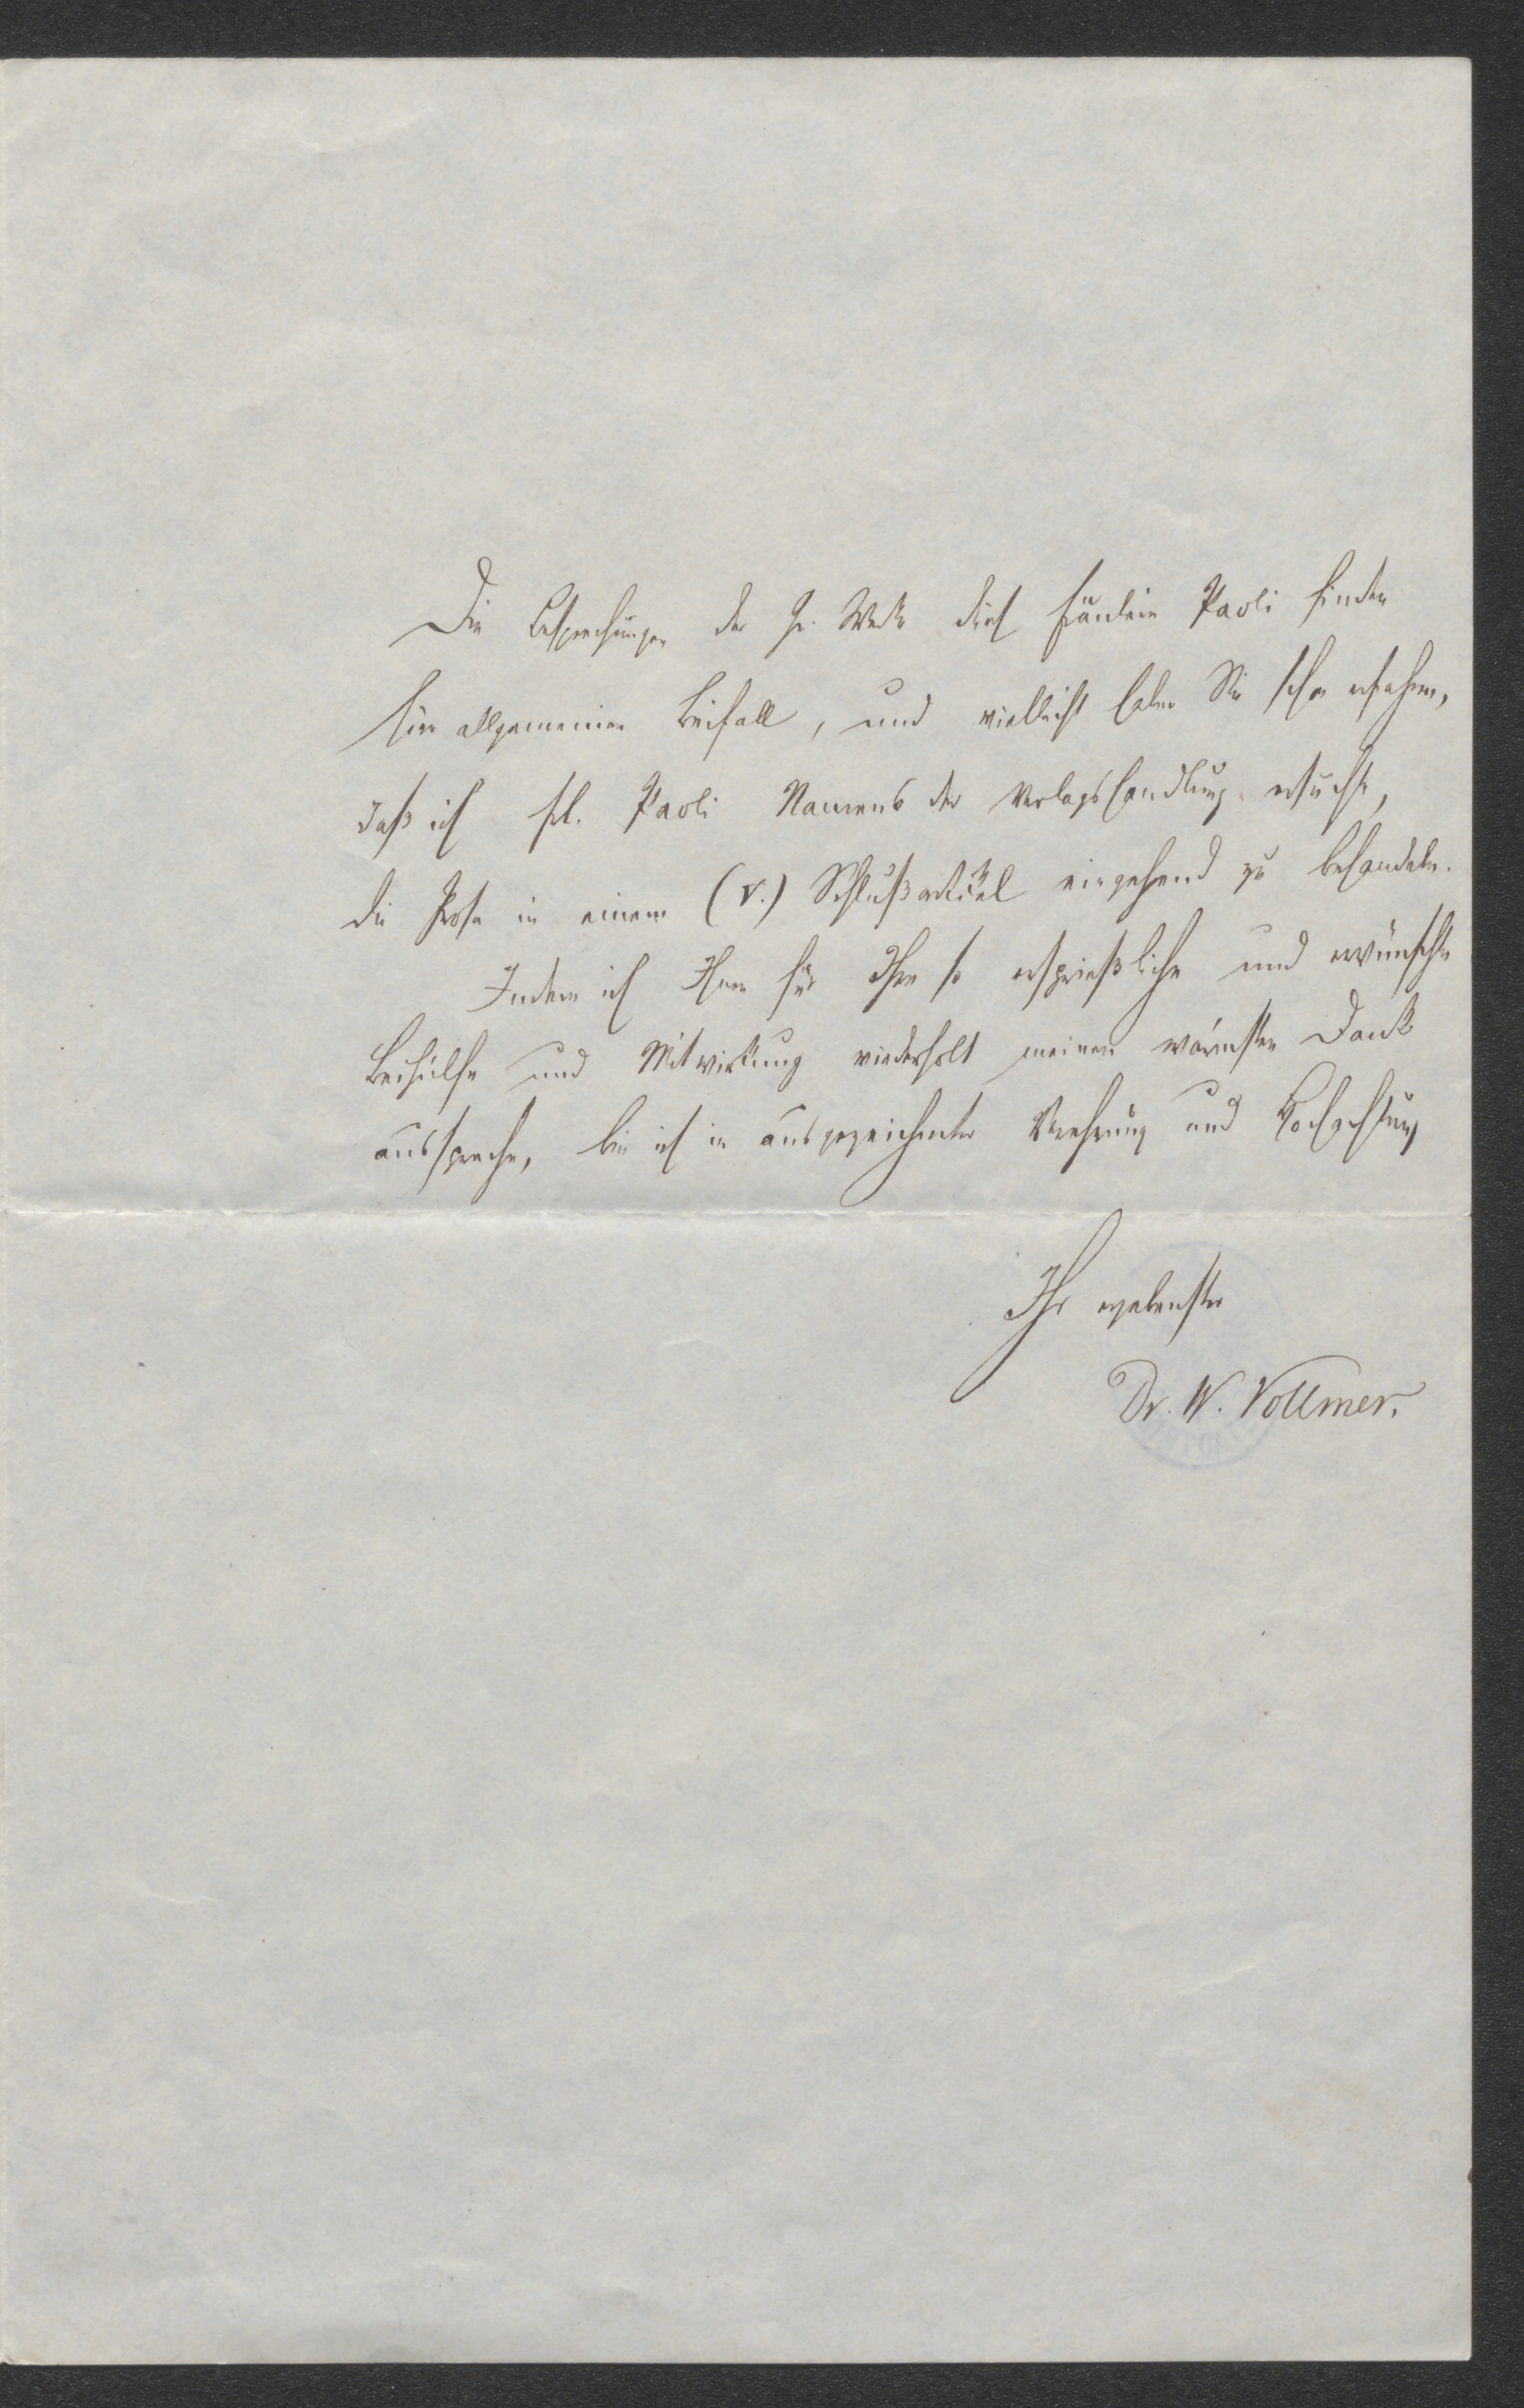 Die Besprechungen der Gr. Werke durch Fräulein Paoli finden
hier allgemeinen Beifall, und vielleicht haben Sie schon erfahren,
daß ich Frl. Paoli Namens der Verlagshandlung ersuchte,
die Prosa in einem (V.) Schlußartikel eingehend zu behandeln.
Indem ich Ihnen für Ihre so ersprießliche und erwünschte
Beihülfe und Mitwirkung wiederholt meinen wärmsten Dank
ausspreche, bin ich in ausgezeichneter Verehrung und Hochachtung
Ihr ergebenster
Dr. W. Vollmer.